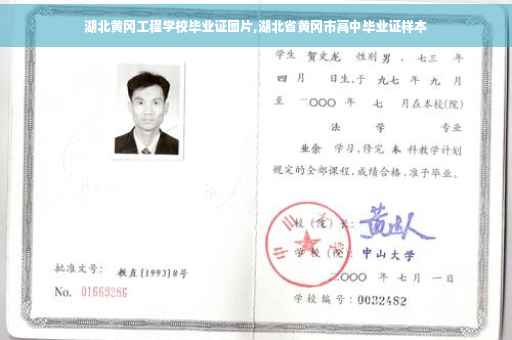 湖北黄冈工程学校毕业证图片,湖北省黄冈市高中毕业证样本
学生 贺文龙 性别 男 ,七三 年
四 月 日生,于 九七 年 九 月
至 二〇〇〇 年 七 月在本校(院)
法 学 专业
业余 学习,修完 本 科教学计划
规定的全部课程,成绩合格,准予毕业。
校 (院) 长:
学 校 (院): 中山大学
二〇〇〇 年 七 月 一 日
批准文号: 教直[1993]8号
No. 01669286
学校编号: 0032482